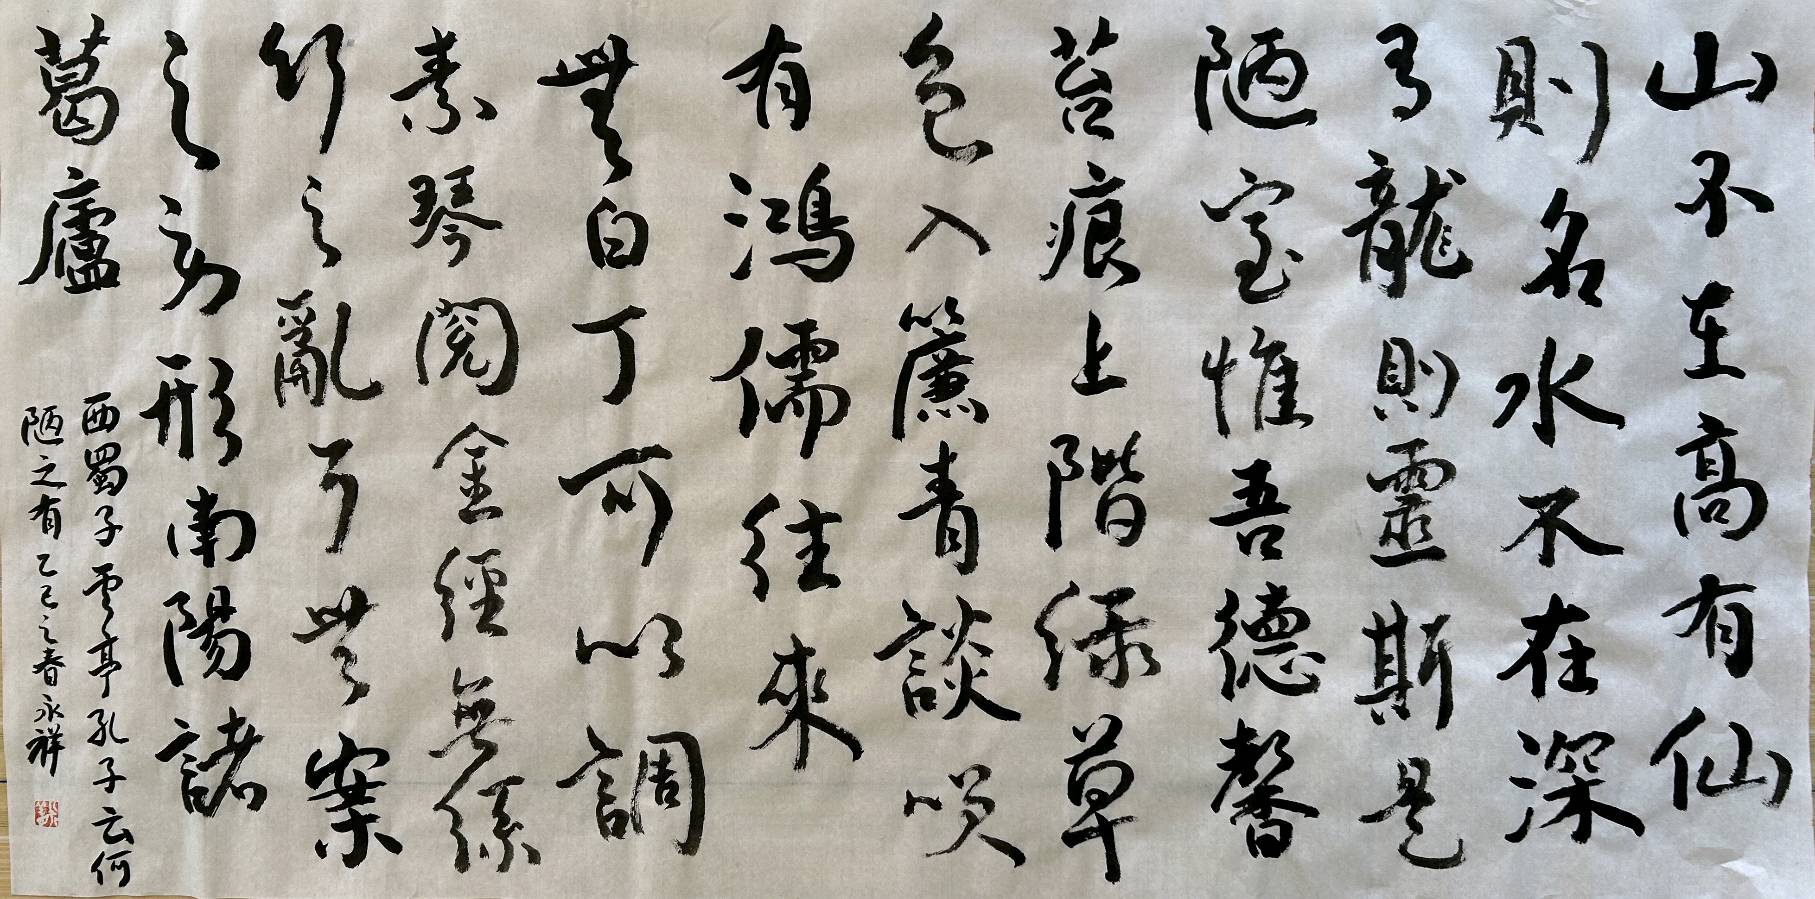 山不在高有仙
則名水不在深
有龍則靈斯是
陋室惟吾德馨
苔痕上階綠草
色入簾青談咲
有鴻儒往來
無白丁可以調
素琴閱金經無絲
竹之亂耳無案
之勞形南陽諸
葛廬
西蜀子雲亭孔子云何
陋之有乙巳之春永祥